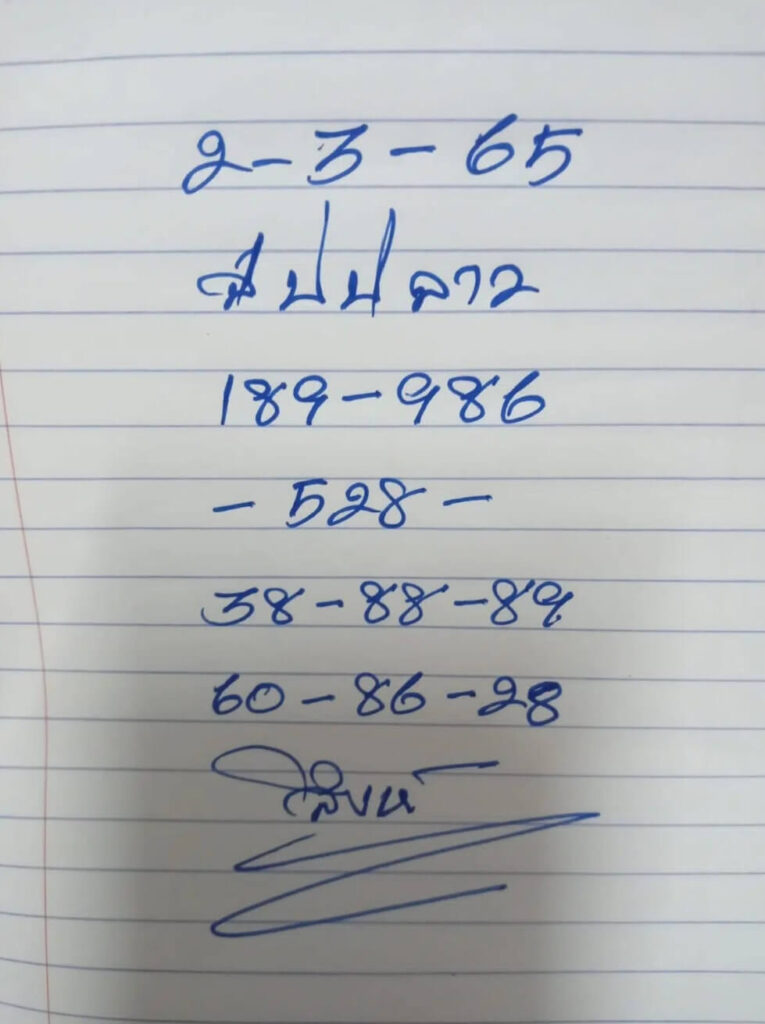 2-3-65
สปปลาว
189-986
-528-
38-88-89
60-86-28